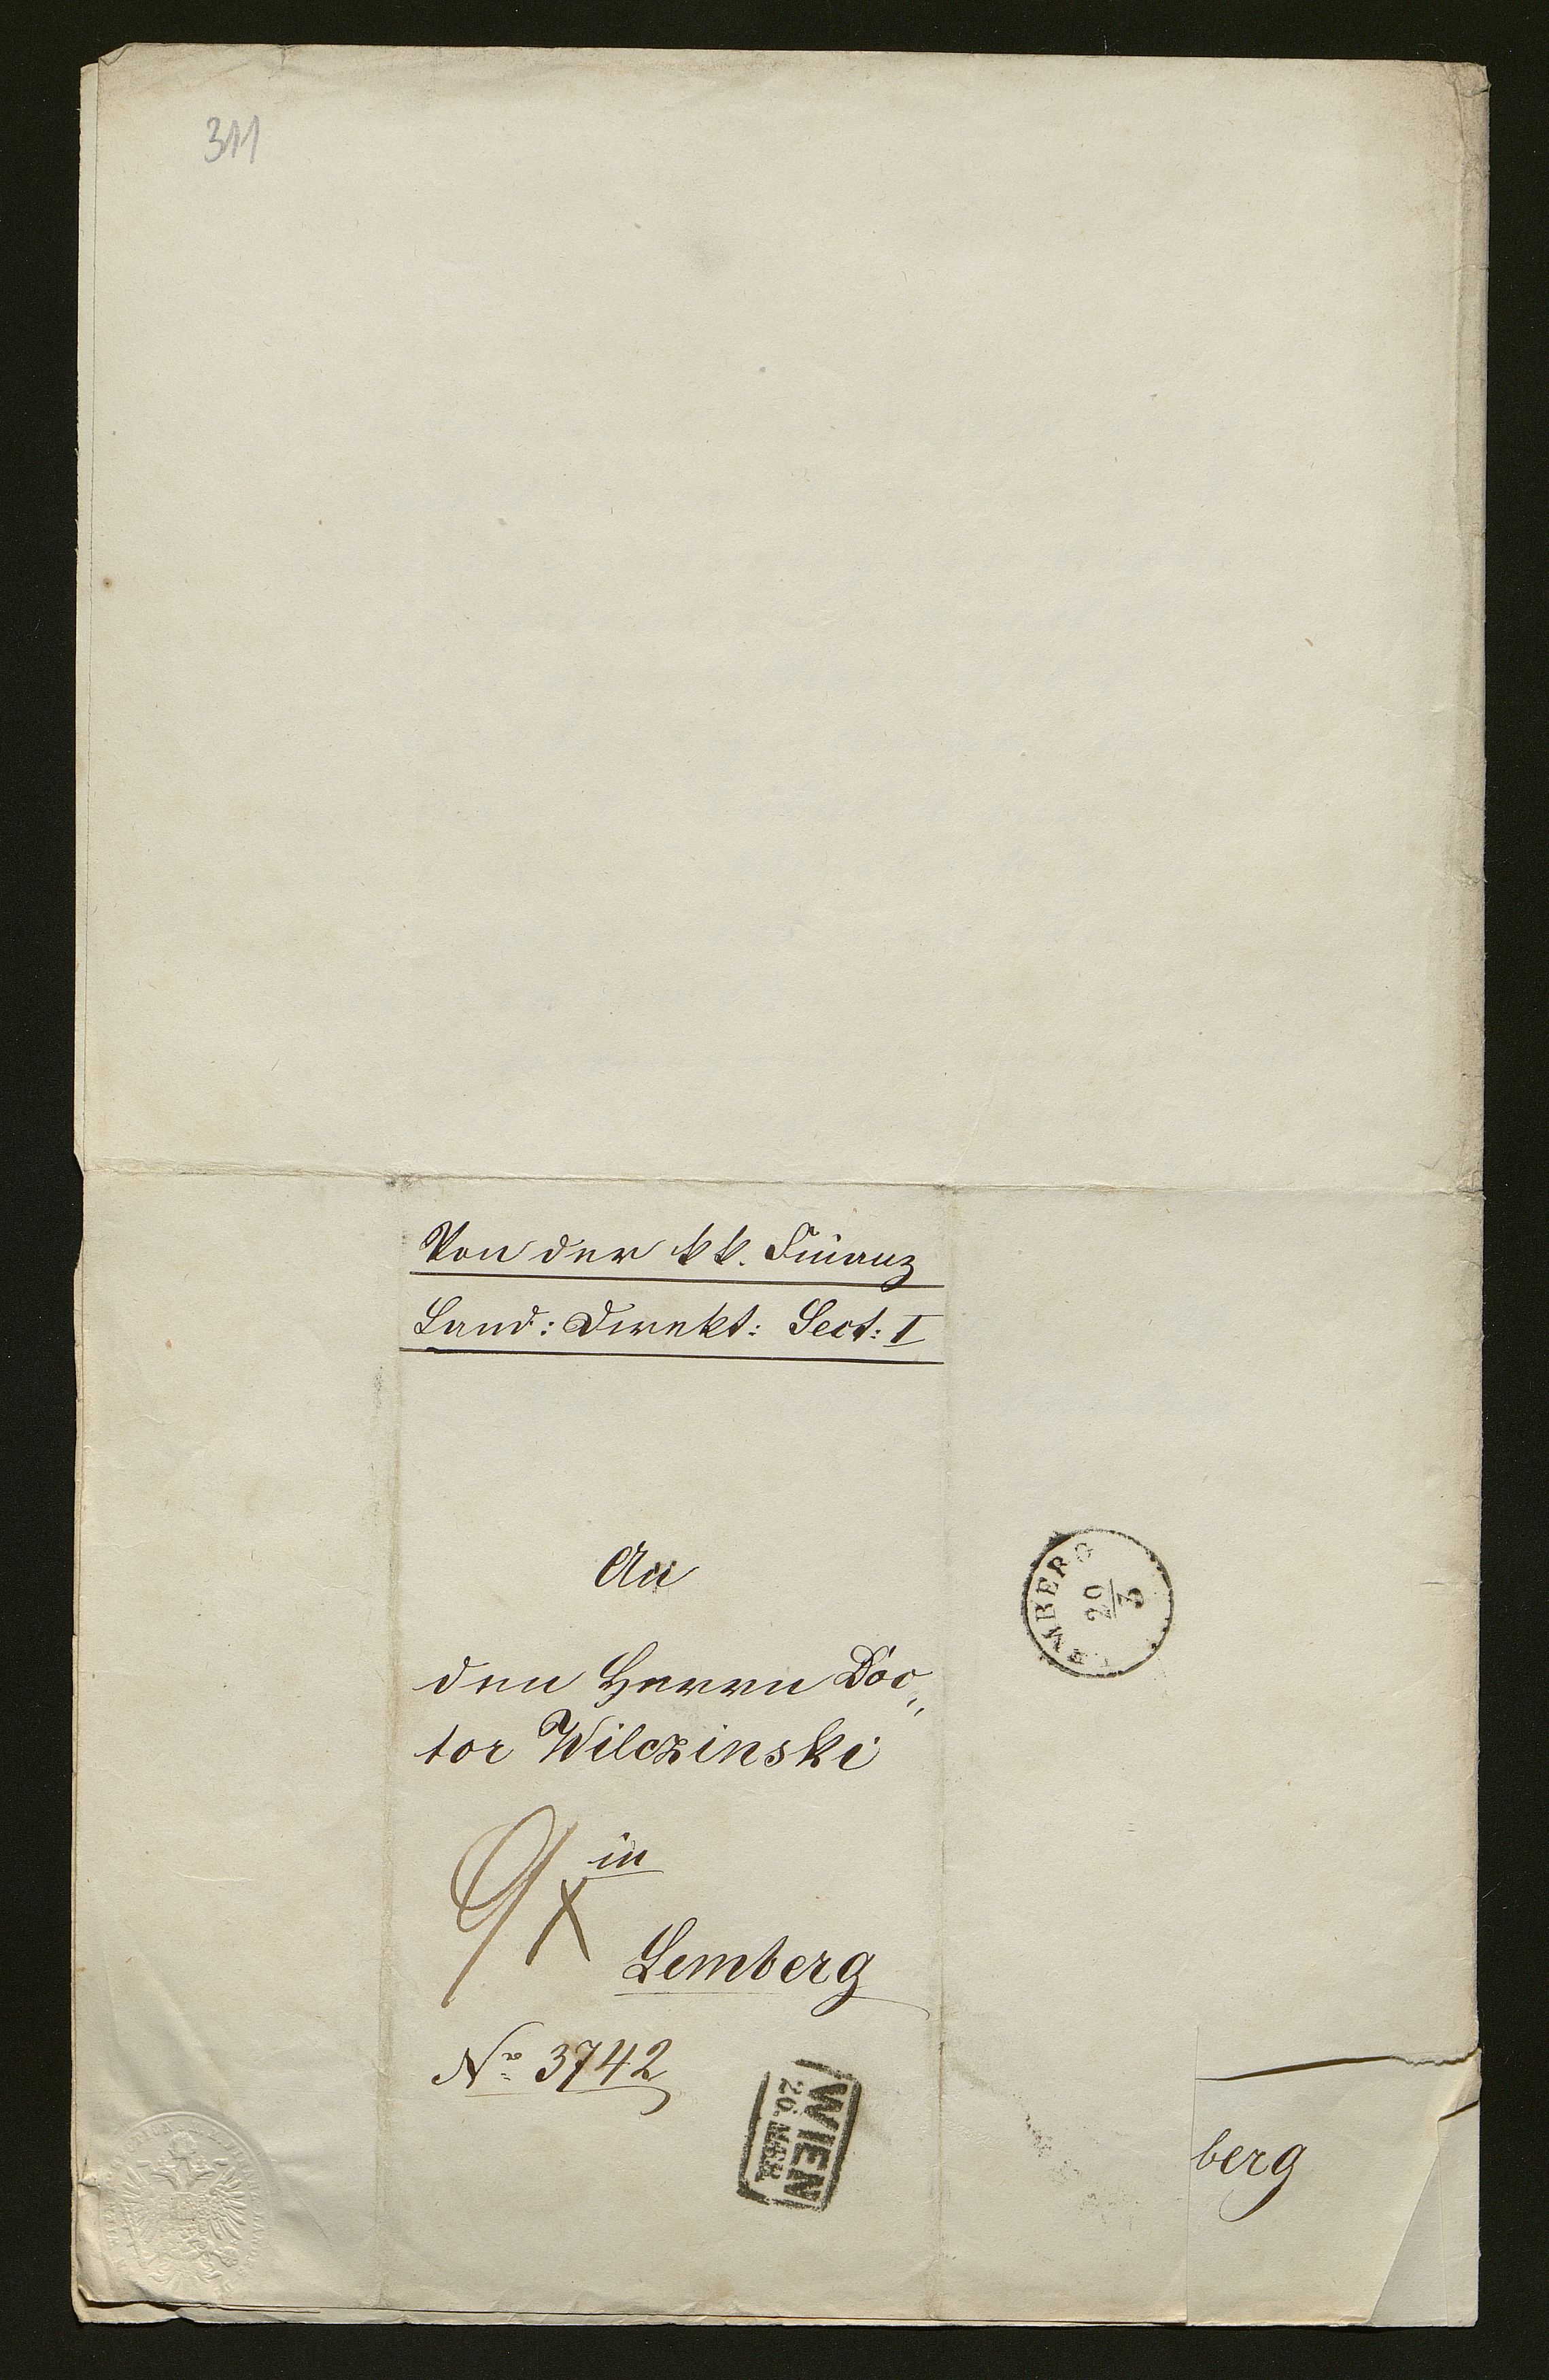 311
Von der kk. Finanz
Land: Direkt: Sect: I
An
den Herrn Doc„
tor Wilczinski
in
9x
Lemberg
Nº 3742
LEMBERG
20/3
WIEN
20. MÄRZ
berg